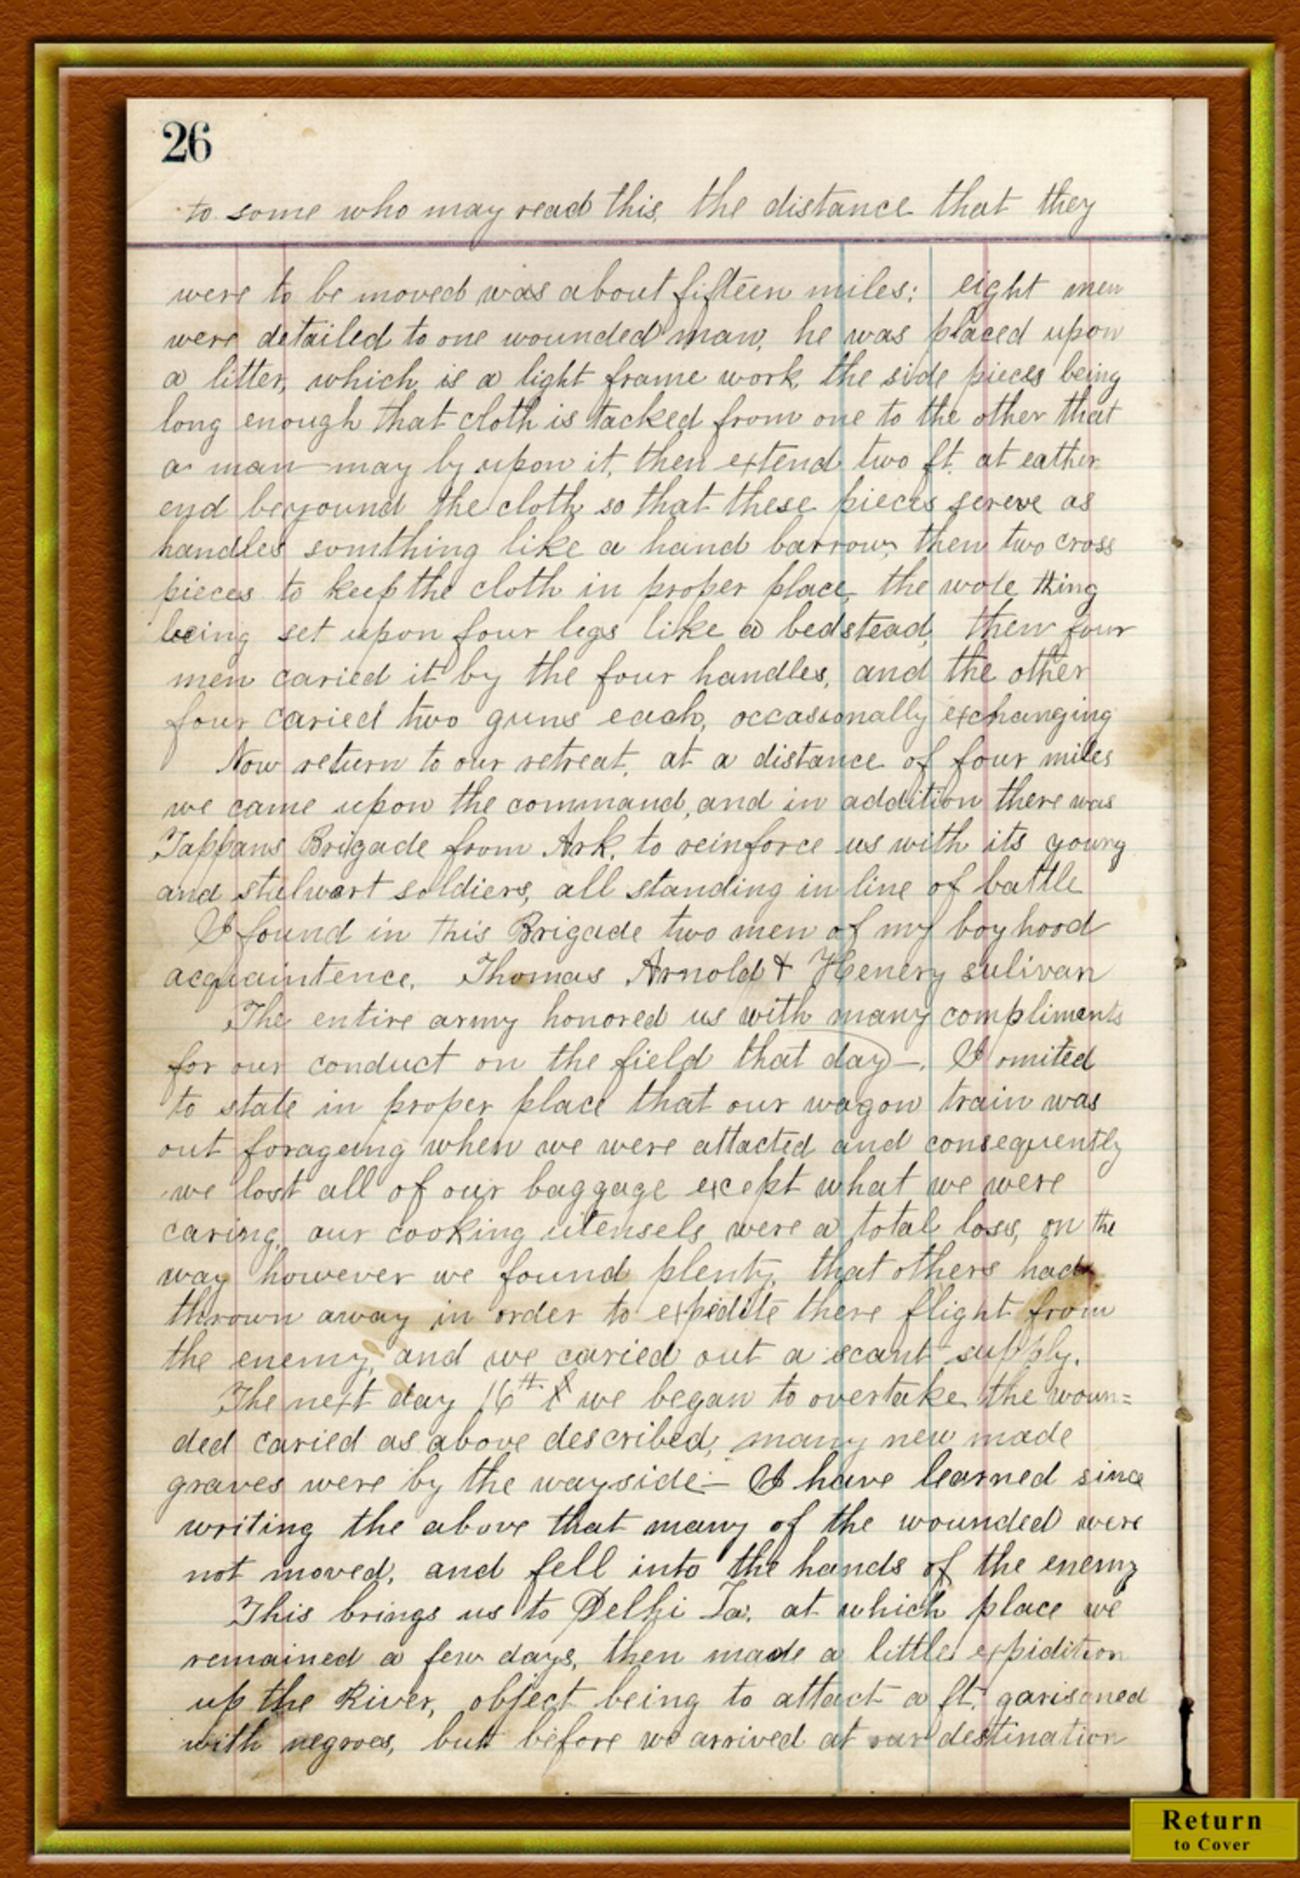 26
to some who may read this, the distance that they
were to be moved was about fifteen miles; eight men
were detailed to one wounded man, he was placed upon
a litter, which is a light frame work, the side pieces being
long enough that cloth is tacked from one to the other that
a man may ly upon it, then extend two ft. at eather
end beyound the cloth so that these pieces sereve as
handles somthing like a hand barrow, then two cross
pieces to keep the cloth in proper place, the wole thing
being set upon four legs like a bedstead, then four
men caried it by the four handles, and the other
four caried two guns each, occasionally exchanging
Now return to our retreat, at a distance of four miles
we came upon the command, and in addition there was
Tappans Brigade from Ark. to reinforce us with its young
and stalwart soldiers, all standing in line of battle
I found in this Brigade two men of my boyhood
acquaintence, Thomas Arnold & Henery sulivan
The entire army honored us with many compliments
for our conduct on the field that day—. I omited
to state in proper place that our wagon train was
out forageing when we were attacted and consequently
we lost all of our baggage except what we were
caring, our cooking utensels were a total loss, on the
way however we found plenty, that others had
thrown away in order to expedite there flight from
the enemy, and we caried out a scant supply.
The next day 16th we began to overtake the woun=
ded caried as above described, many new made
graves were by the wayside:— I have learned since
writing the above that many of the wounded were
not moved, and fell into the hands of the enemy
This brings us to Delhi La. at which place we
remained a few days, then made a little expidition
up the River, object being to attact a ft. garisoned
with negroes, but before we arrived at our destination
Return
to Cover